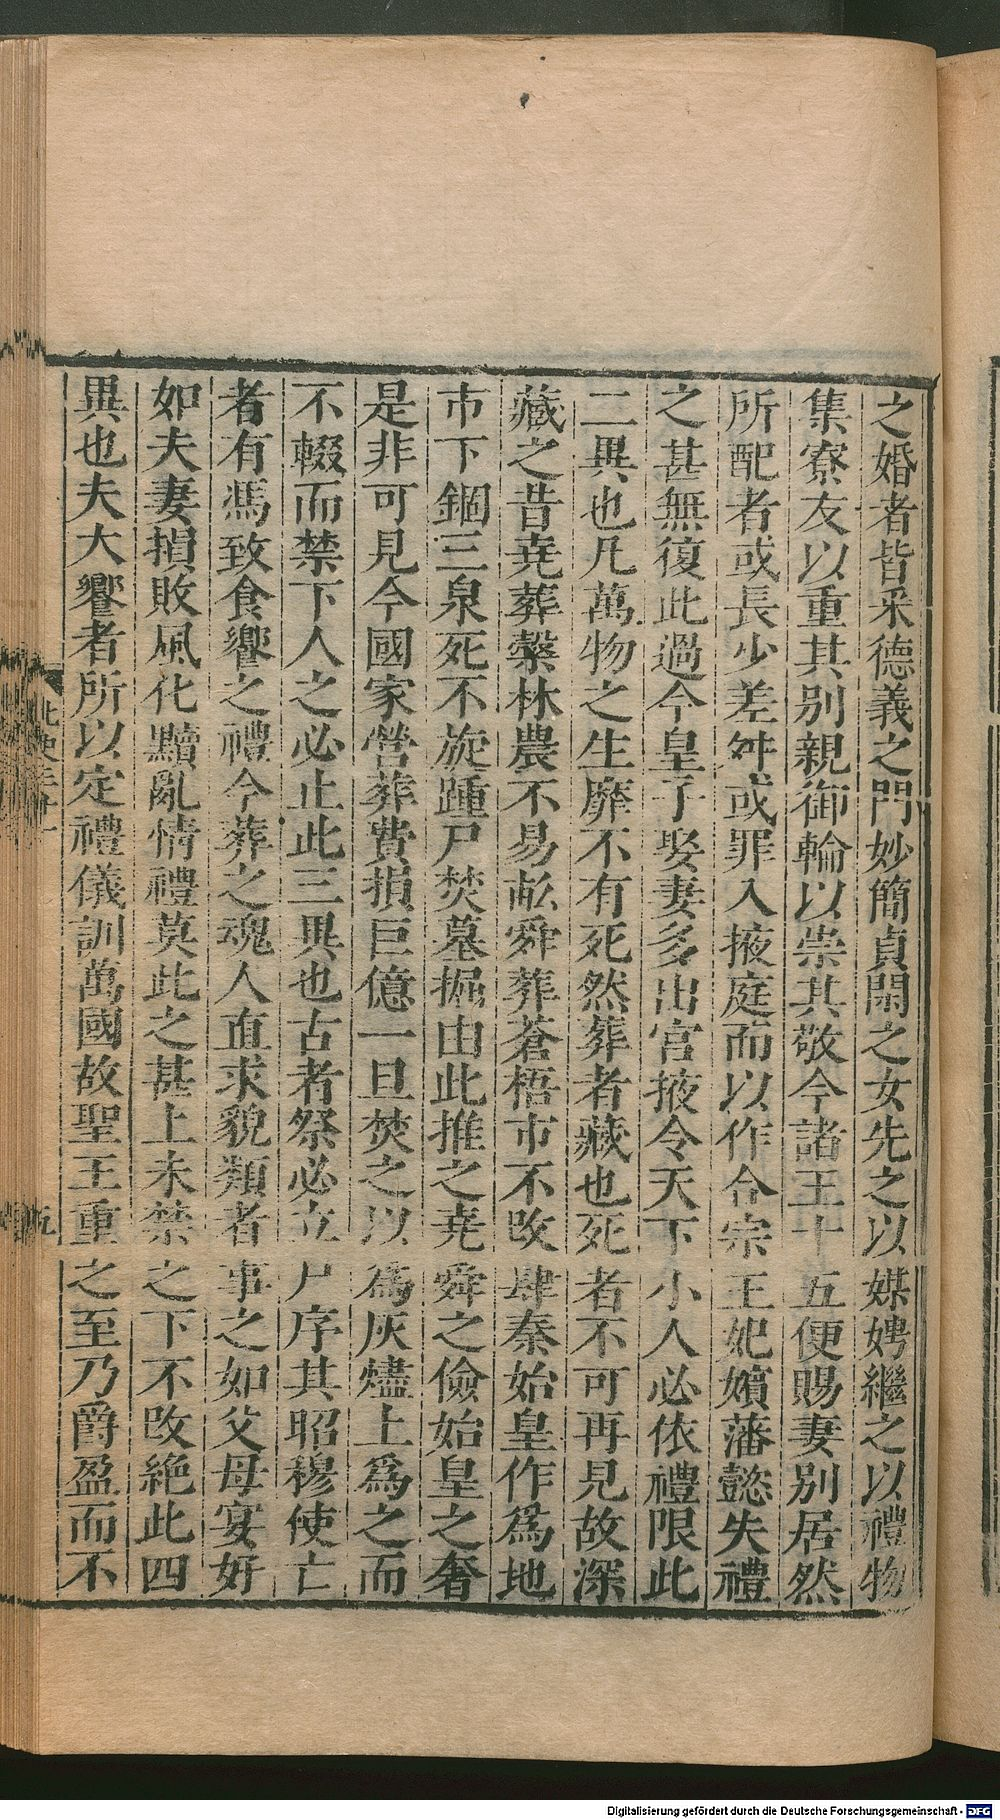 之婚者皆采德義之門妙簡貞閑之女先之以媒娉繼之以禮物
集寮友以重其別親御輪以崇其敬今諸王十五便賜妻別居然
所配者或長少差舛或罪入掖庭而以作合宗王妃嬪藩懿失禮
之甚無復此過今皇子娶妻多出宮掖令天下小人必依禮限此
二異也凡萬物之生靡不有死然葬者藏也死者不可再見故深
藏之昔堯葬糓林農不易畝舜葬蒼梧市不改肆秦始皇作爲地
市下錮三泉死不旋踵尸焚墓掘由此推之堯舜之儉始皇之奢
是非可見今國家營葬費損巨億一旦焚之以爲灰燼上爲之而
不輟而禁下人之必止此三異也古者祭必立尸序其昭穆使亡
者有馮致食饗之禮今葬之魂人直求貌類者事之如父母宴好
如夫妻損敗風化黷亂情禮莫此之甚上未禁之下不改絶此四
異也夫大饗者所以定禮儀訓萬國故聖王重之至乃爵盈而不
五
Digitalisierung gefördert durch die Deutsche Forschungsgemeinschaft - DFG